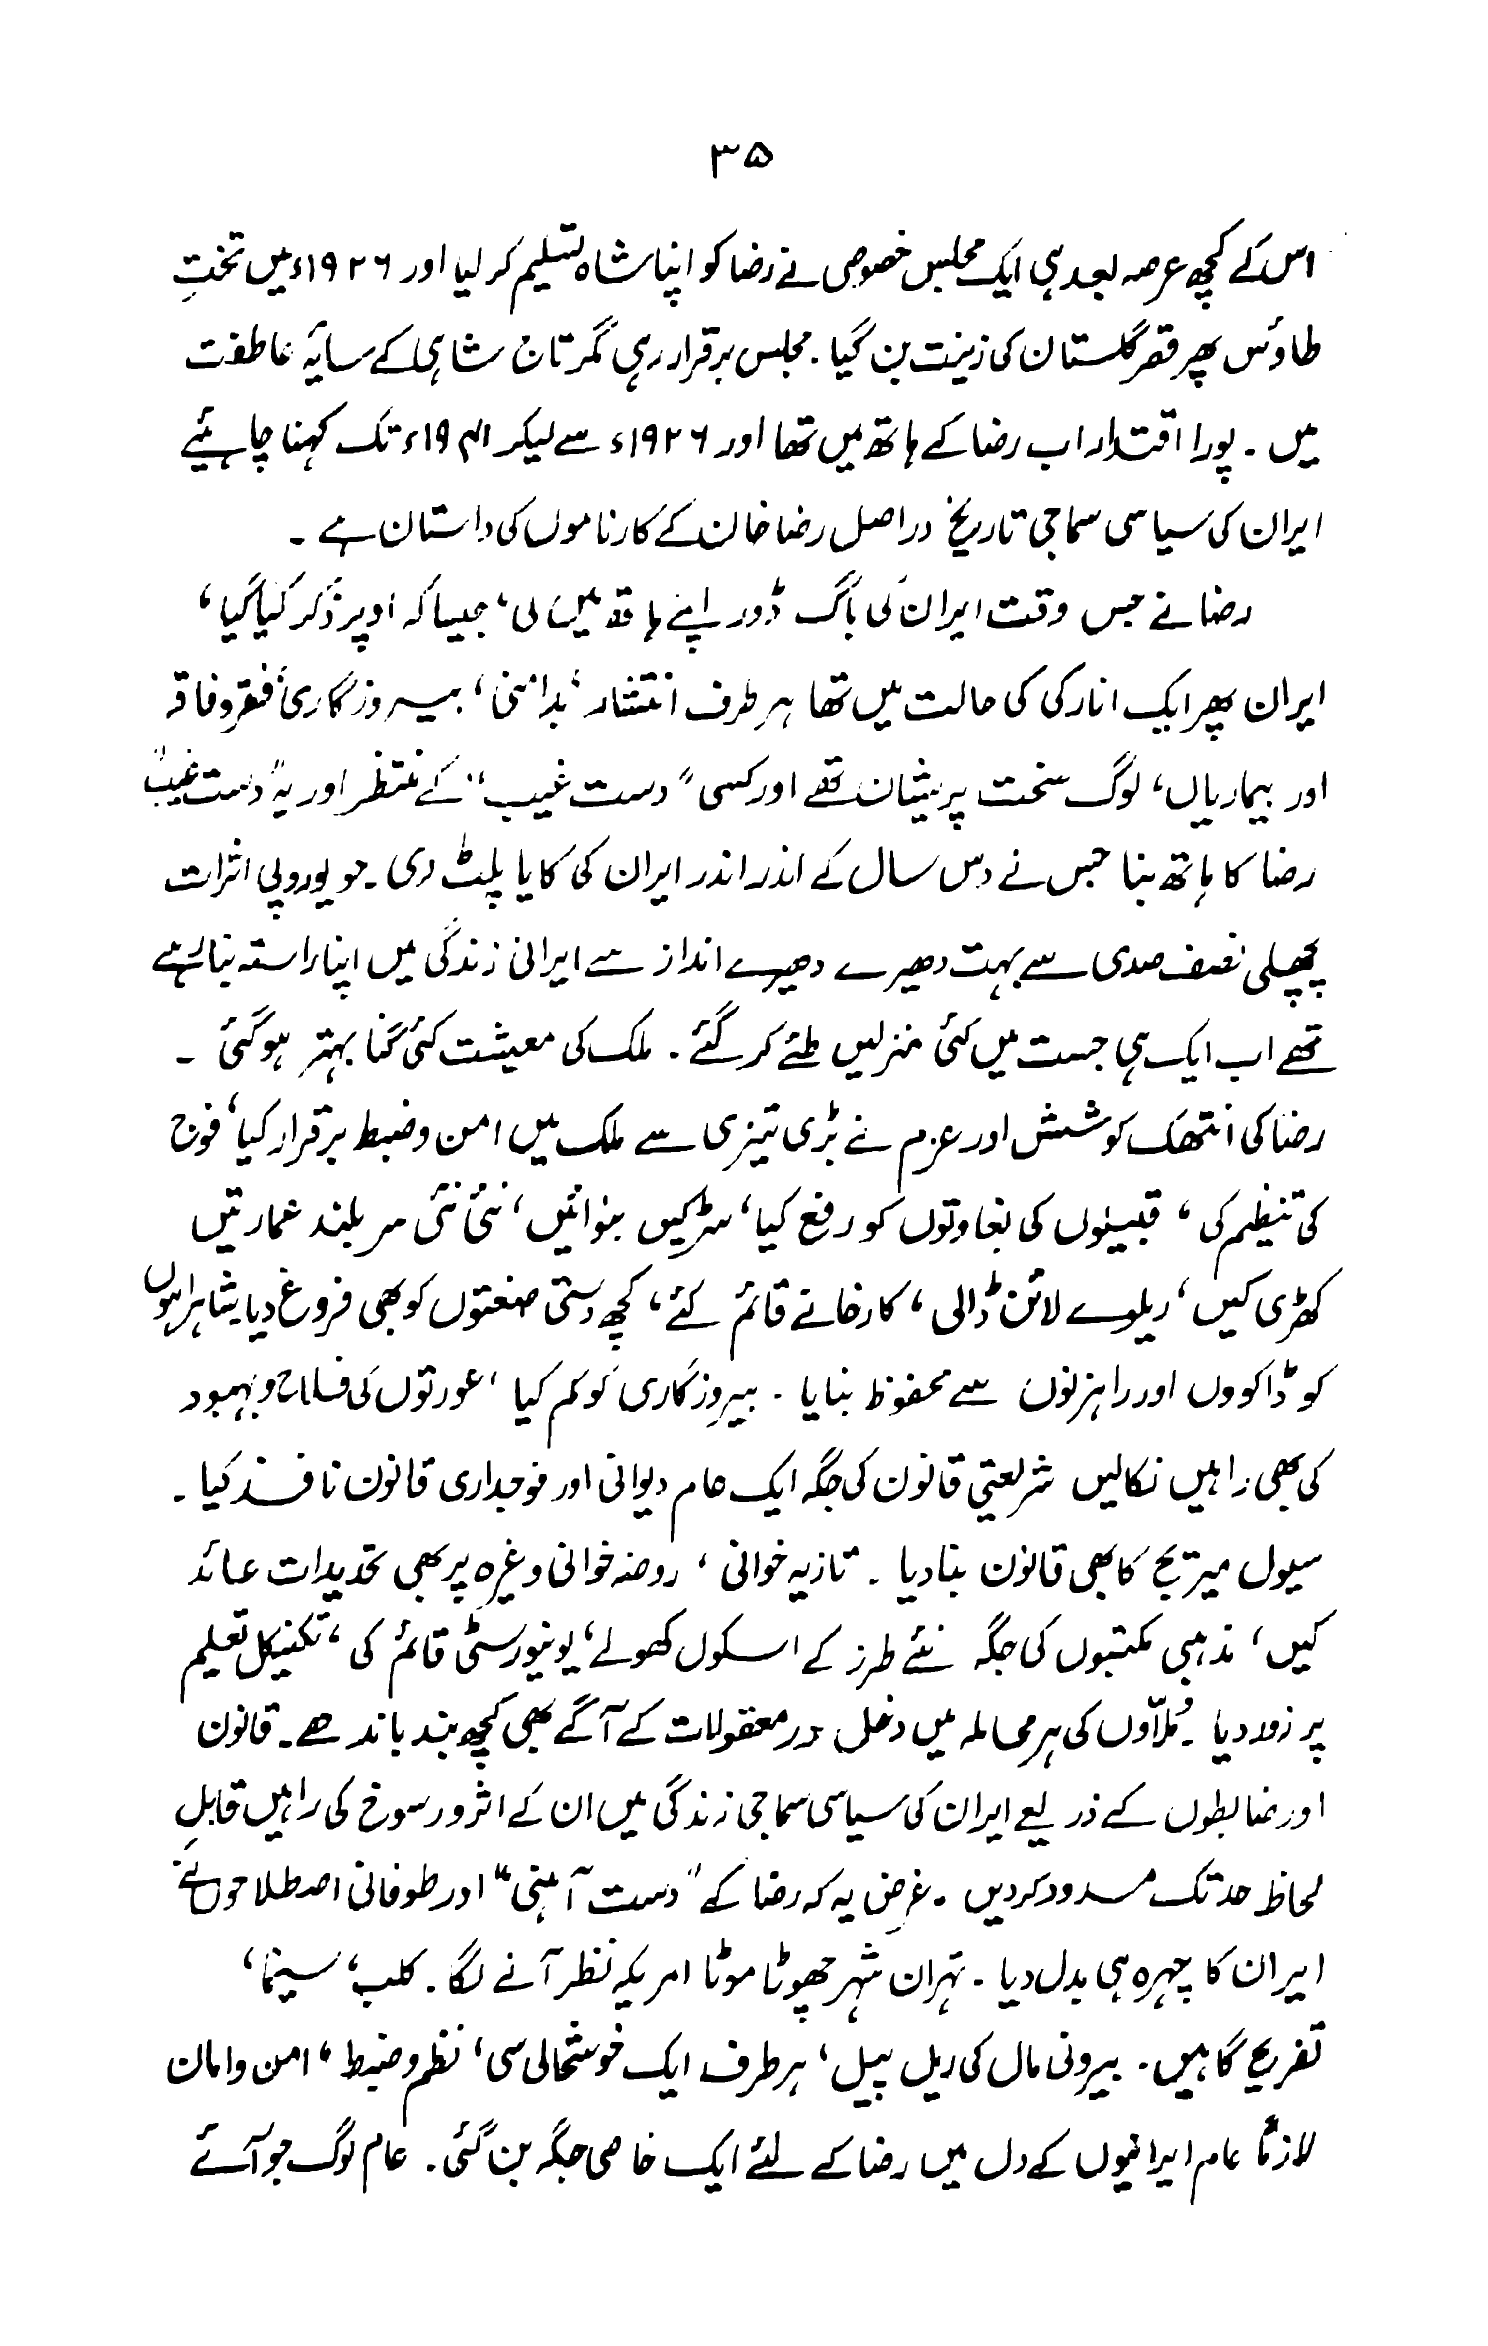 ۳۵
اس کے کچھ عرصہ بعد ہی ایک مجلس خصوصی نے رضا کو اپنا شاہ تسلیم کر لیا اور ۱۹۲۶ء میں تختِ
طاؤس پھر قصر گلستان کی زینت بن گیا ۔ مجلس برقرار رہی مگر تان شاہی کے سایۂ عاطفت
میں ۔ پورا اقتدار اب رضا کے ہاتھ میں تھا اور ۱۹۲۶ء سے لیکر ۱۹۴۱ء تک کہنا چاہئیے
ایران کی سیاسی سماجی تاریخ دراصل رضا خان کے کارناموں کی داستان ہے ۔
رضا نے جس وقت ایران کی باگ ڈور اپنے ہاتھ میں لی، جیسا کہ اوپر ذکر کیا گیا،
ایران پھر ایک انارکی کی حالت میں تھا ہر طرف انتشار، بدامنی، بیروزگاری، فقر و فاقہ
اور بیماریاں، لوگ سخت پریشان تھے اور کسی "دست غیب" کے منتظر اور یہ "دست غیب"
رضا کا ہاتھ بنا جس نے دس سال کے اندر اندر ایران کی کایا پلٹ دی ۔ جو یوروپی اثرات
پچھلی نصف صدی سے بہت دھیرے دھیرے انداز سے ایرانی زندگی میں اپنا راستہ بنا رہے
تھے اب ایک ہی جست میں کئی منزلیں طئے کر گئے ۔ ملک کی معیشت کئی گنا بہتر ہو گئی ۔
رضا کی انتھک کوشش اور عزم نے بڑی تیزی سے ملک میں امن و ضبط برقرار کیا، فوج
کی تنظیم کی، قبیلوں کی بغاوتوں کو رفع کیا، سڑکیں بنوائیں، نئی نئی سر بلند عمارتیں
کھڑی کیں، ریلوے لائن ڈالی، کارخانے قائم کئے، کچھ دستی صنعتوں کو بھی فروغ دیا شاہراہوں
کو ڈاکووں اور راہزنوں سے محفوظ بنایا ۔ بیروزگاری کو کم کیا، عورتوں کی فلاح و بہبود
کی بھی راہیں نکالیں شریعتی قانون کی جگہ ایک عام دیوانی اور فوجداری قانون نافذ کیا ۔
سیول میریج کا بھی قانون بنا دیا ۔ تازیہ خوانی، روضہ خوانی وغیرہ پر بھی تحدیدات عائد
کیں، مذہبی مکتبوں کی جگہ نئے طرز کے اسکول کھولے، یونیورسٹی قائم کی، تکنیکل تعلیم
پر زور دیا ۔ مُلّاوں کی ہر معاملہ میں دخل در معقولات کے آگے بھی کچھ بند باندھے ۔ قانون
اور ضابطوں کے ذریعے ایران کی سیاسی سماجی زندگی میں ان کے اثر و رسوخ کی راہیں قابلِ
لحاظ حد تک مسدود کردیں ۔ غرض یہ کہ رضا کے "دست آہنی" اور طوفانی اصطلاحوں نے
ایران کا چہرہ ہی بدل دیا ۔ تہران شہر چھوٹا موٹا امریکہ نظر آنے لگا ۔ کلب، سینما،
تفریح گاہیں ۔ بیرونی مال کی ریل پیل، ہر طرف ایک خوشحالی سی، نظم و ضبط، امن و امان
لازماً عام ایرانیوں کے دل میں رضا کے لئے ایک خاصی جگہ بن گئی ۔ عام لوگ جو آئے